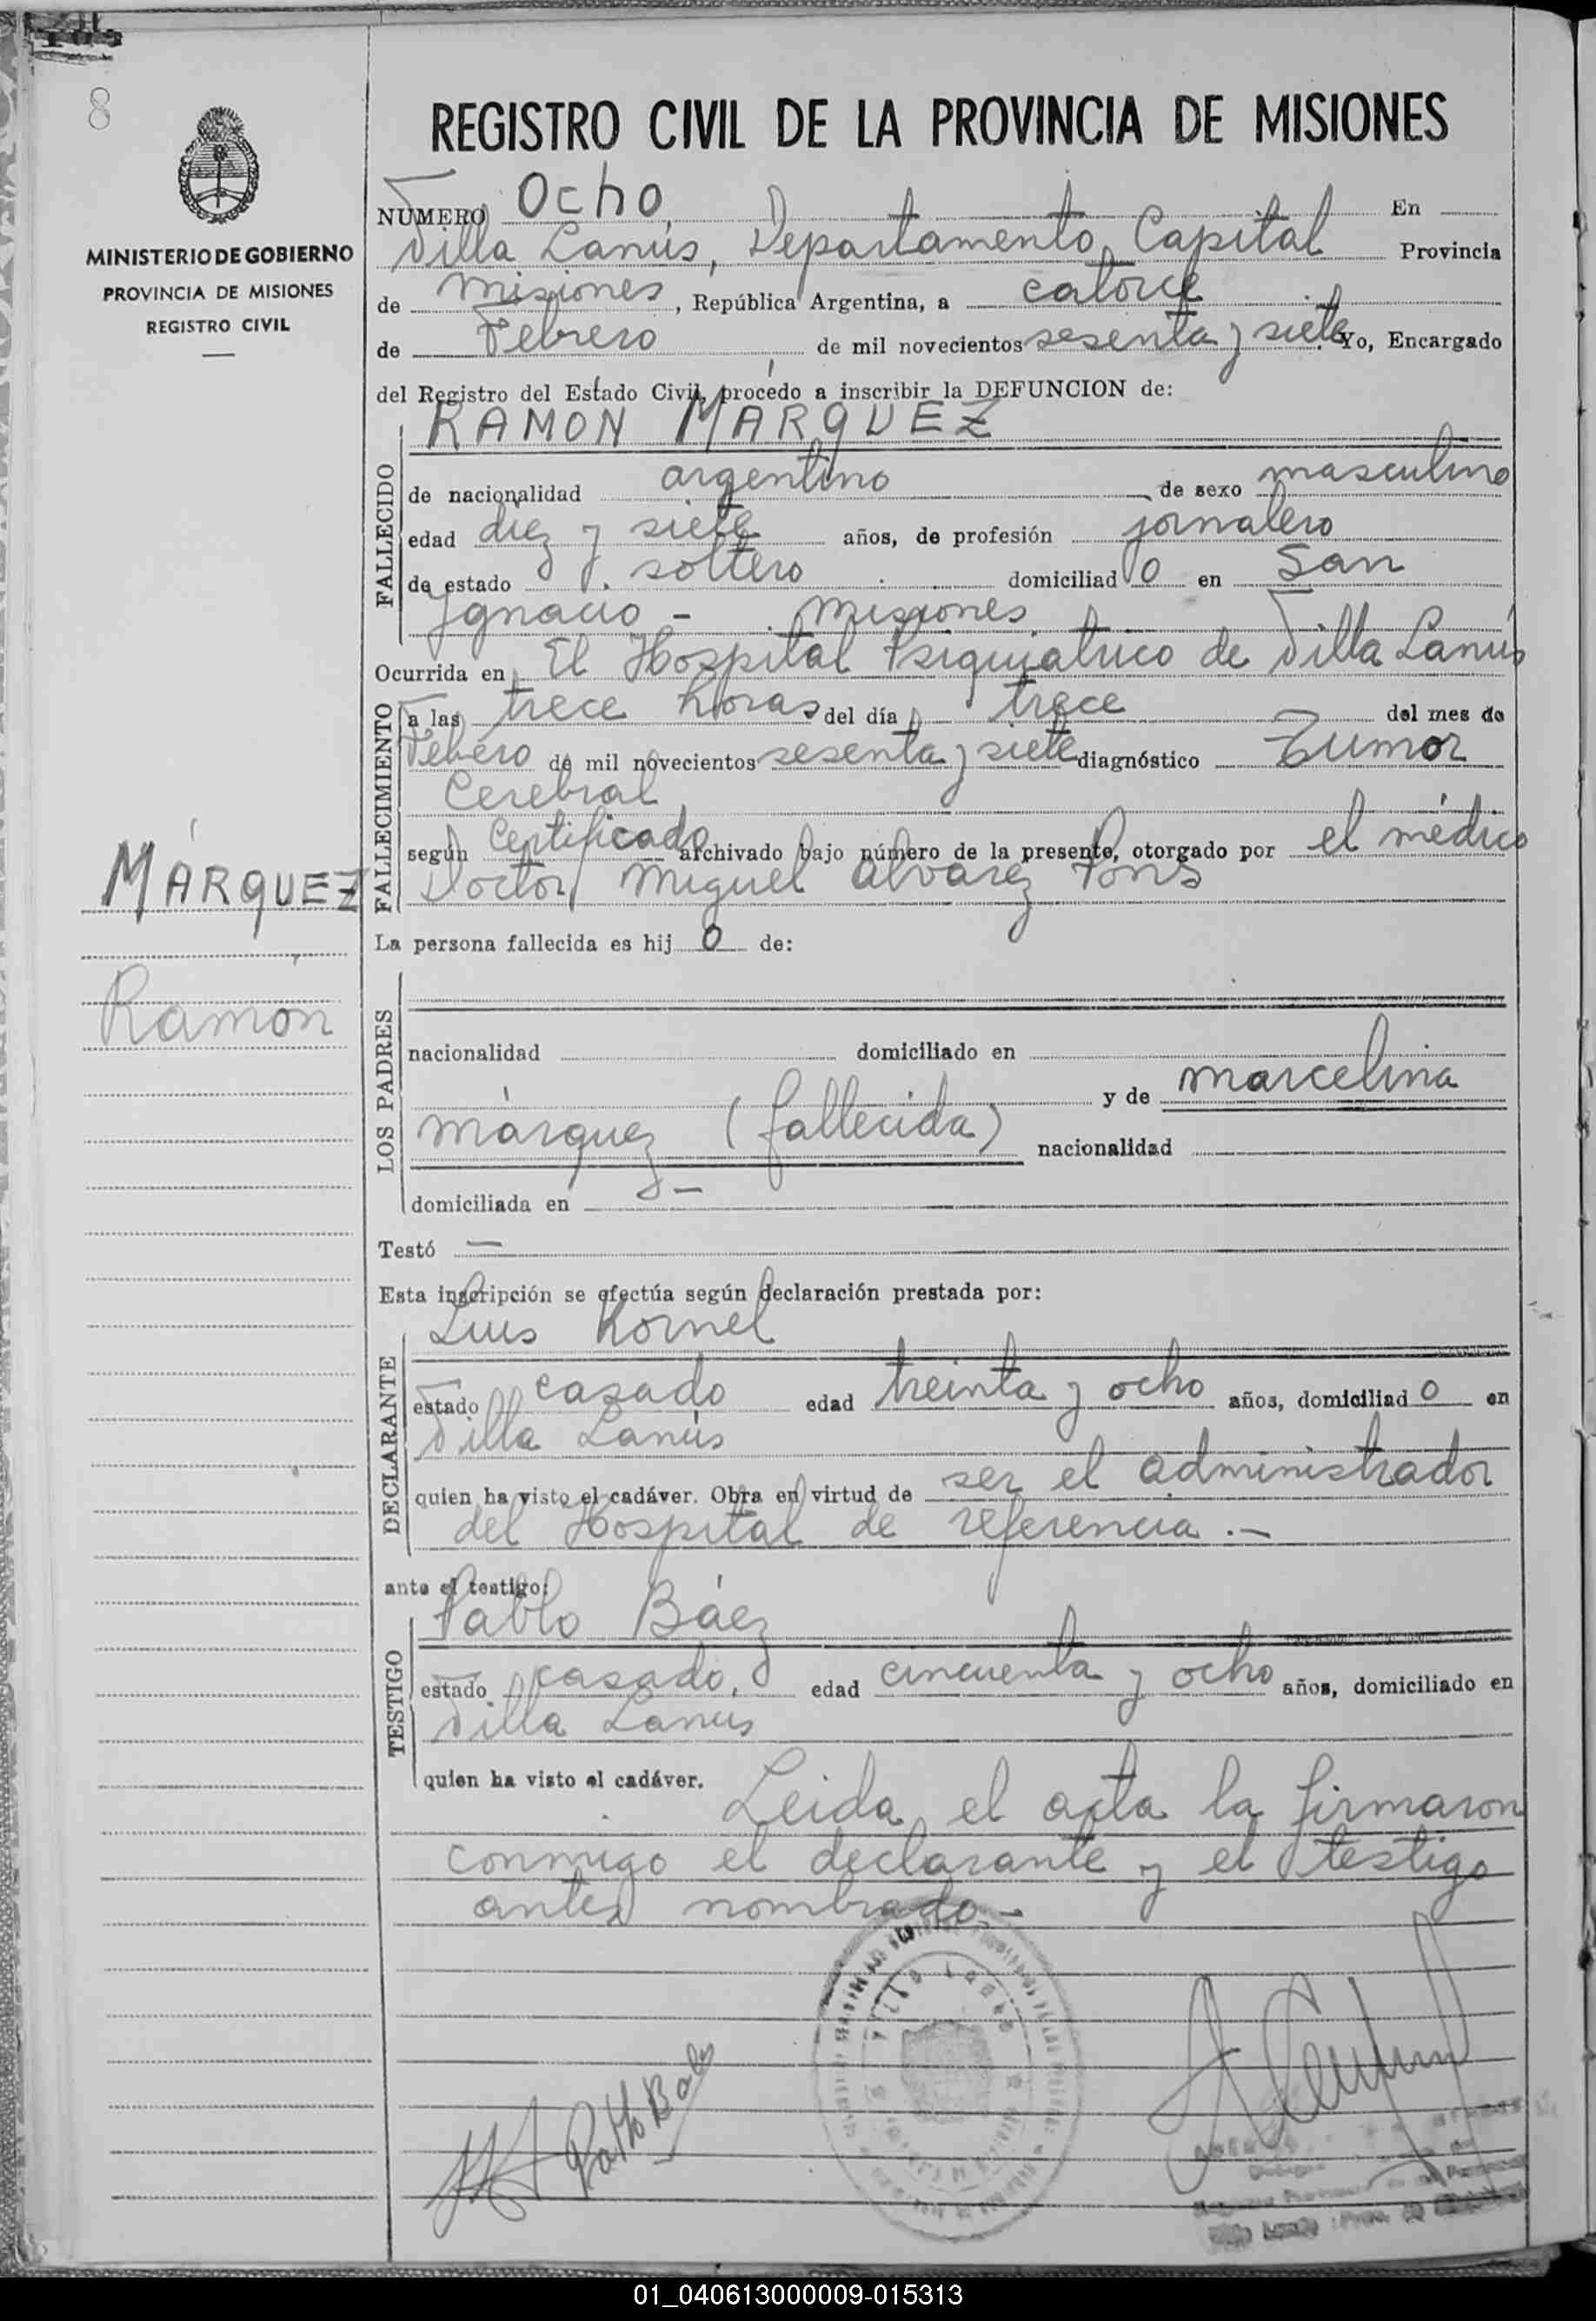 8
MINISTERIO DE GOBIERNO
PROVINCIA DE MISIONES
REGISTRO CIVIL
MÁRQUEZ
Ramón
REGISTRO CIVIL DE LA PROVINCIA DE MISIONES
NUMERO Ocho En
Villa Lanús, Departamento Capital Provincia
de Misiones, República Argentina, a catorce
de Febrero de mil novecientos sesenta y siete Yo, Encargado
del Registro del Estado Civil, procedo a inscribir la DEFUNCION de:
RAMON MÁRQUEZ
FALLECIDO
de nacionalidad argentino de sexo masculino
edad diez y siete años, de profesión jornalero
de estado soltero domiciliado en San
Ignacio - Misiones
Ocurrida en El Hospital Psiquiatrico de Villa Lanús
FALLECIMIENTO
a las trece horas del día trece del mes de
Febero de mil novecientos sesenta y siete diagnóstico Tumor
Cerebral
según Certificado archivado bajo número de la presente, otorgado por el médico
Doctor Miguel Alvarez Pons
La persona fallecida es hijo de:
LOS PADRES
nacionalidad domiciliado en
y de Marcelina
Márquez (fallecida) nacionalidad
domiciliada en —
Testó —
Esta inscripción se efectúa según declaración prestada por:
Luis Kornel
DECLARANTE
estado casado edad treinta y ocho años, domiciliado en
Villa Lanús
quien ha visto el cadáver. Obra en virtud de ser el administrador
del Hospital de referencia.—
ante el testigo:
Pablo Báez
TESTIGO
estado casado, edad cincuenta y ocho años, domiciliado en
Villa Lanus
quien ha visto el cadáver. Leida el acta la firmaron
conmigo el declarante y el testigo
antes nombrado-
VILLA LANUS
01_040613000009-015313